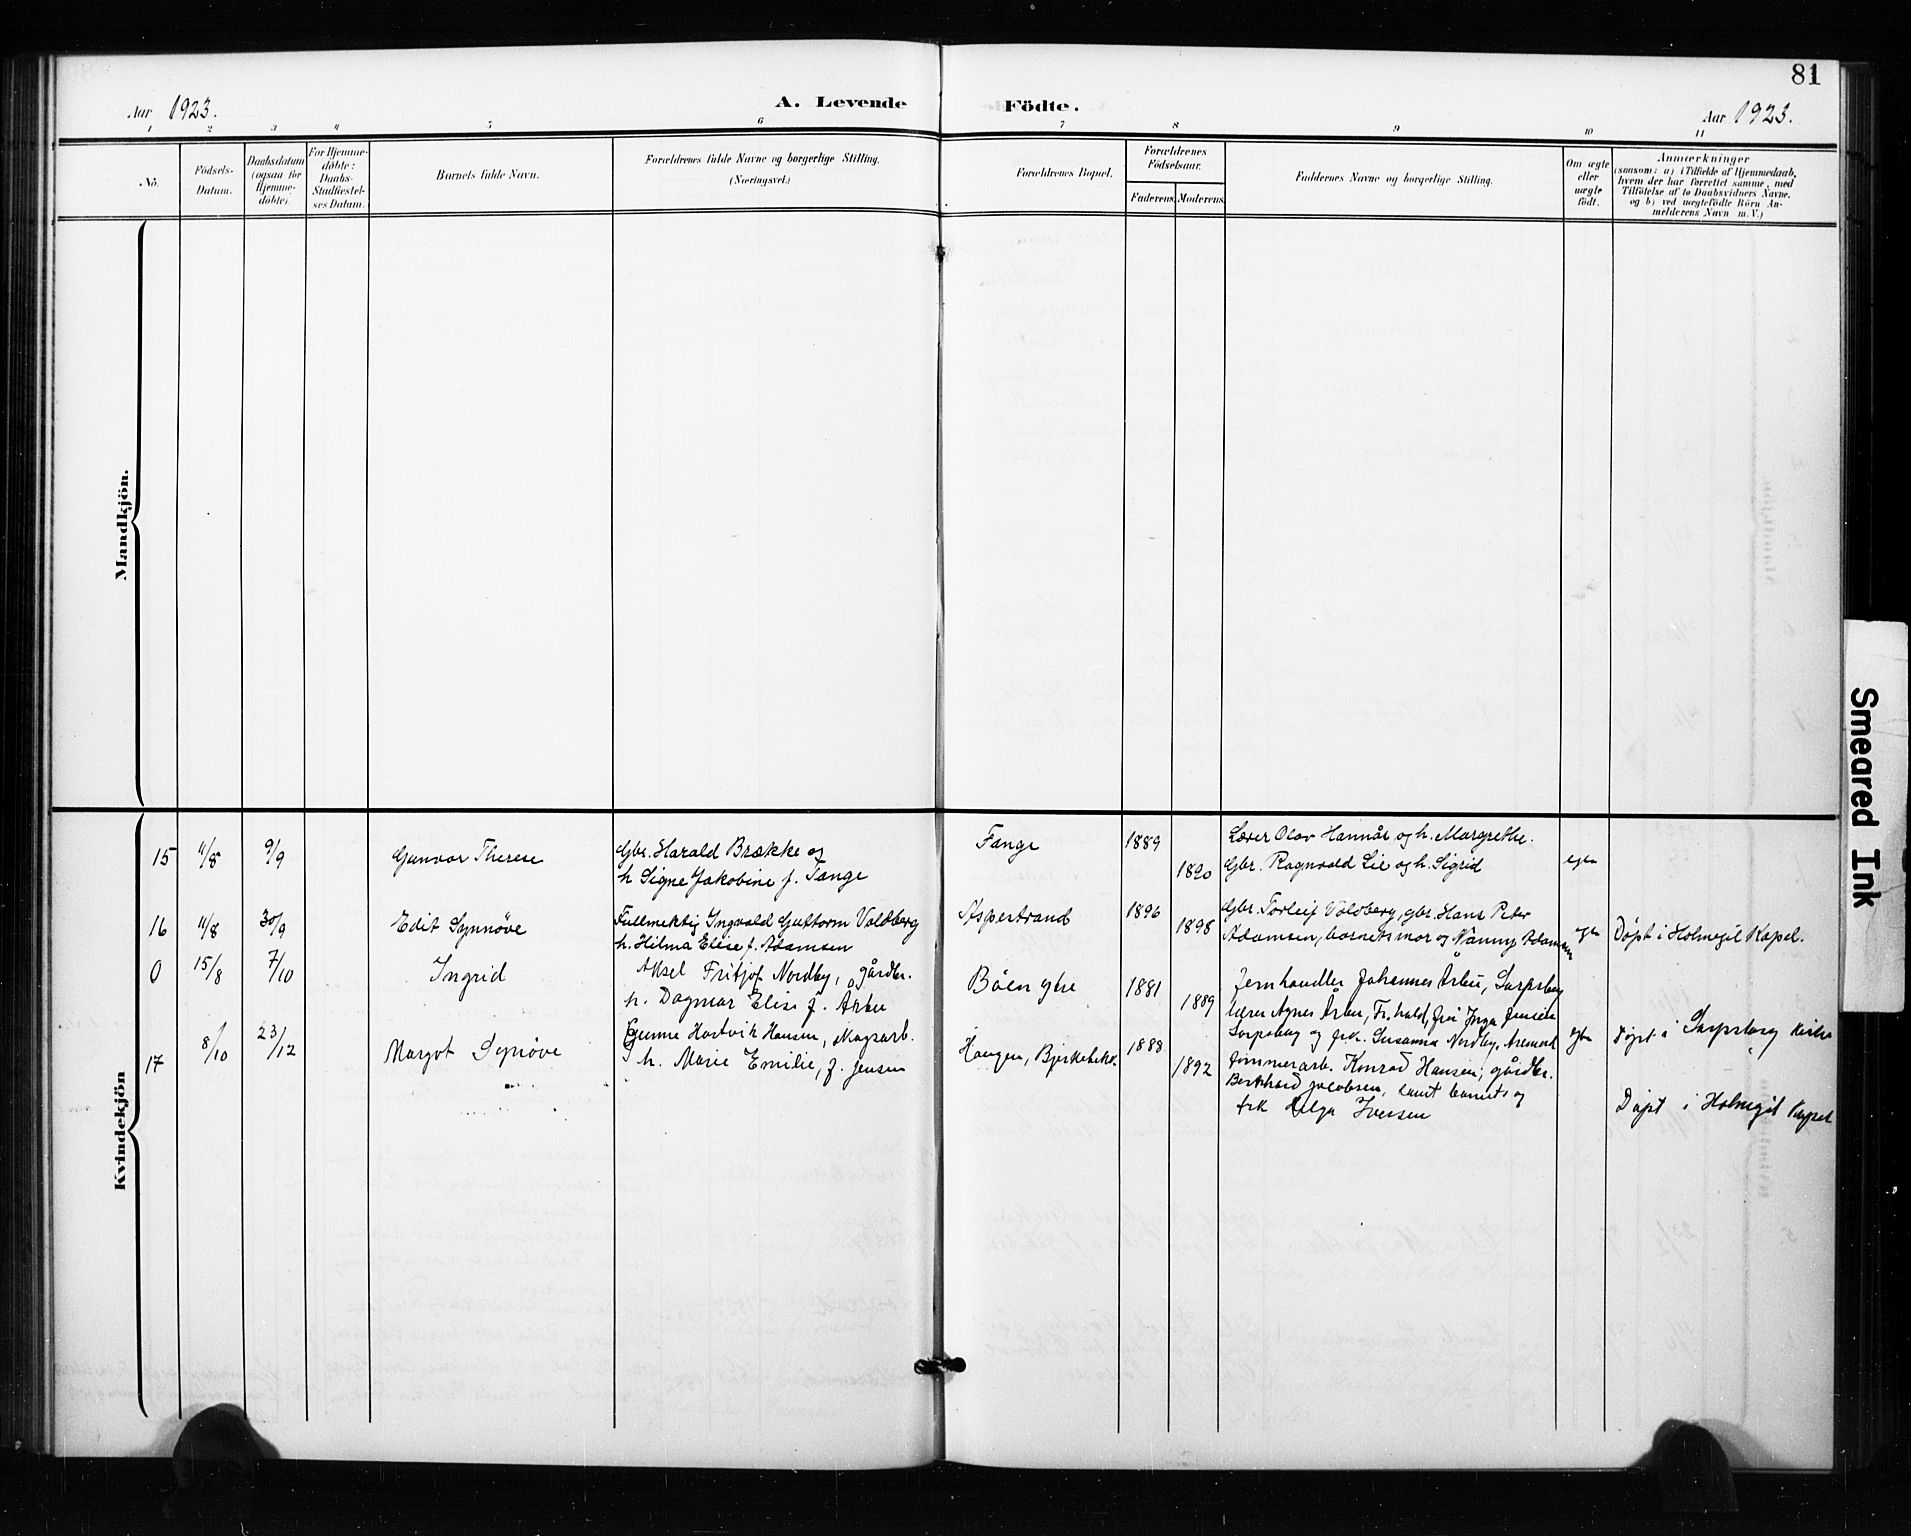 81
Aar 1923.
A. Levende Födte.
Aar 1923.
1 2 3 4 5 6 7 8 9 10 11
No.
Födsels-Datum.
Daabsdatum (ogsaa for Hjemme-döbte).
For Hjemme-döbte: Daabs-Stadfæstel-ses Datum.
Barnets fulde Navn.
Forældrenes fulde Navne og borgerlige Stilling.
(Næringsvei.)
Forældrenes Bopæl.
Forældrenes Födselsaar.
Faderens. Moderens.
Faddernes Navne og borgerlige Stilling.
Om ægte eller uægte födt.
Anmærkninger
(saasom: a) i Tilfælde af Hjemmedaab,
hvem der har forrettet samme, med
Tilföielse af to Daabsvidners Navne,
og b) ved uægtefödte Börn An-
melderens Navn m. V.)
Mandkjön.
Kvindekjön
15 4/8 9/9 Gunvor Therese
Gbr. Harald Brække og
h Signe Jakobine f. Tange
Fange 1889 1890
Lærer Olav Hannås og h. Margrethe.
Gbr. Ragnvald Lie og h. Sigrid
egte
16 11/8 30/9 Edit Synnöve
Fullmektig Ingvald Guttorm Voldberg
h. Hilma Elise f. Adamsen
Aspestrand 1896 1898
Gbr. Torleif Voldberg, gbr. Hans Peter
Adamsen, barnets mor og Nanny Adamsen
egte
Døpt i Holmegil Kapel.
0 15/8 7/10 Ingrid
Aksel Fritjof Nordby, gårdbr.
h. Dagmar Elise f. Arbu
Böen ytre 1881 1889
Jernhandler Johannes Arbu, Sarpsborg
lærer Agnes Arbu, Fr.hald, fru Inga Jensen
Sarpsborg og frk. Susanna Nordby, Aremark
egte
Døpt i Sarpsborg kirke
17 8/10 23/12 Margot Synöve
Hartvik Hansen,
h. Marie Emilie, f. Jensen
Haugen, Bjerkebekk. 1888 1892
Tømmerarb. Konrad Hansen, gårdbr.
Berkhard Jacobsen, samt barnets og
frk Helga Iversen
Døpt i Holmegil Kapel
Smeared Ink